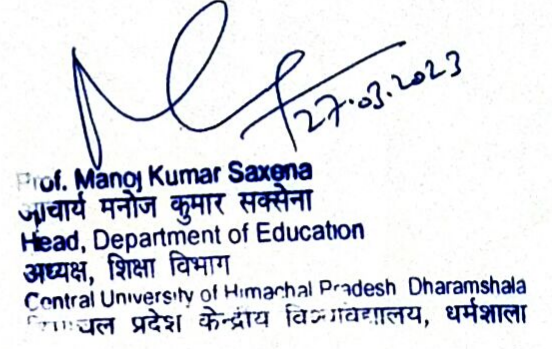 27.03.2023
Prof. Manoj Kumar Saxena
आचार्य मनोज कुमार सक्सेना
Head, Department of Education
अध्यक्ष, शिक्षा विभाग
Central University of Himachal Pradesh Dharamshala
हिमाचल प्रदेश केन्द्रीय विश्वविद्यालय, धर्मशाला